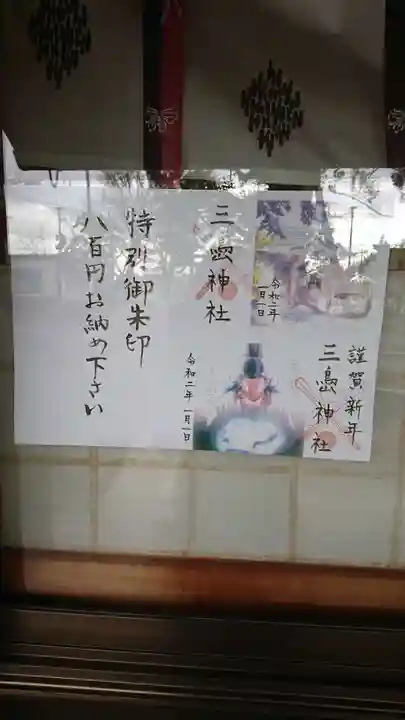 謹賀新年
三島神社
令和二年一月一日
三島神社
令和二年 一月一日
特別御朱印
八百円お納め下さい